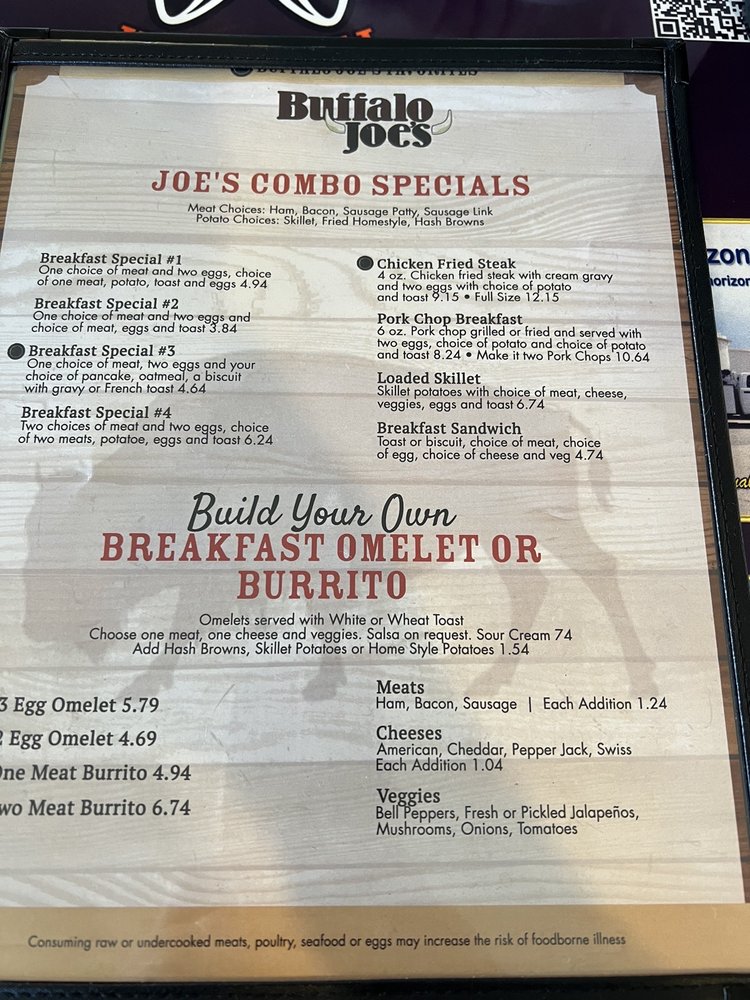 BUFFALO JOE'S FAVORITES
Buffalo
Joe's
JOE'S COMBO SPECIALS
Meat Choices: Ham, Bacon, Sausage Patty, Sausage Link
Potato Choices: Skillet, Fried Homestyle, Hash Browns
Breakfast Special #1
One choice of meat and two eggs, choice
of one meat, potato, toast and eggs 4.94
Breakfast Special #2
One choice of meat and two eggs and
choice of meat, eggs and toast 3.84
Breakfast Special #3
One choice of meat, two eggs and your
choice of pancake, oatmeal, a biscuit
with gravy or French toast 4.64
Breakfast Special #4
Two choices of meat and two eggs, choice
of two meats, potatoe, eggs and toast 6.24
Chicken Fried Steak
4 oz. Chicken fried steak with cream gravy
and two eggs with choice of potato
and toast 9.15 • Full Size 12.15
Pork Chop Breakfast
6 oz. Pork chop grilled or fried and served with
two eggs, choice of potato and choice of potato
and toast 8.24 • Make it two Pork Chops 10.64
Loaded Skillet
Skillet potatoes with choice of meat, cheese,
veggies, eggs and toast 6.74
Breakfast Sandwich
Toast or biscuit, choice of meat, choice
of egg, choice of cheese and veg 4.74
Build Your Own
BREAKFAST OMELET OR
BURRITO
Omelets served with White or Wheat Toast
Choose one meat, one cheese and veggies. Salsa on request. Sour Cream 74
Add Hash Browns, Skillet Potatoes or Home Style Potatoes 1.54
3 Egg Omelet 5.79
2 Egg Omelet 4.69
One Meat Burrito 4.94
wo Meat Burrito 6.74
Meats
Ham, Bacon, Sausage | Each Addition 1.24
Cheeses
American, Cheddar, Pepper Jack, Swiss
Each Addition 1.04
Veggies
Bell Peppers, Fresh or Pickled Jalapeños,
Mushrooms, Onions, Tomatoes
Consuming raw or undercooked meats, poultry, seafood or eggs may increase the risk of foodborne illness
zon
horizon